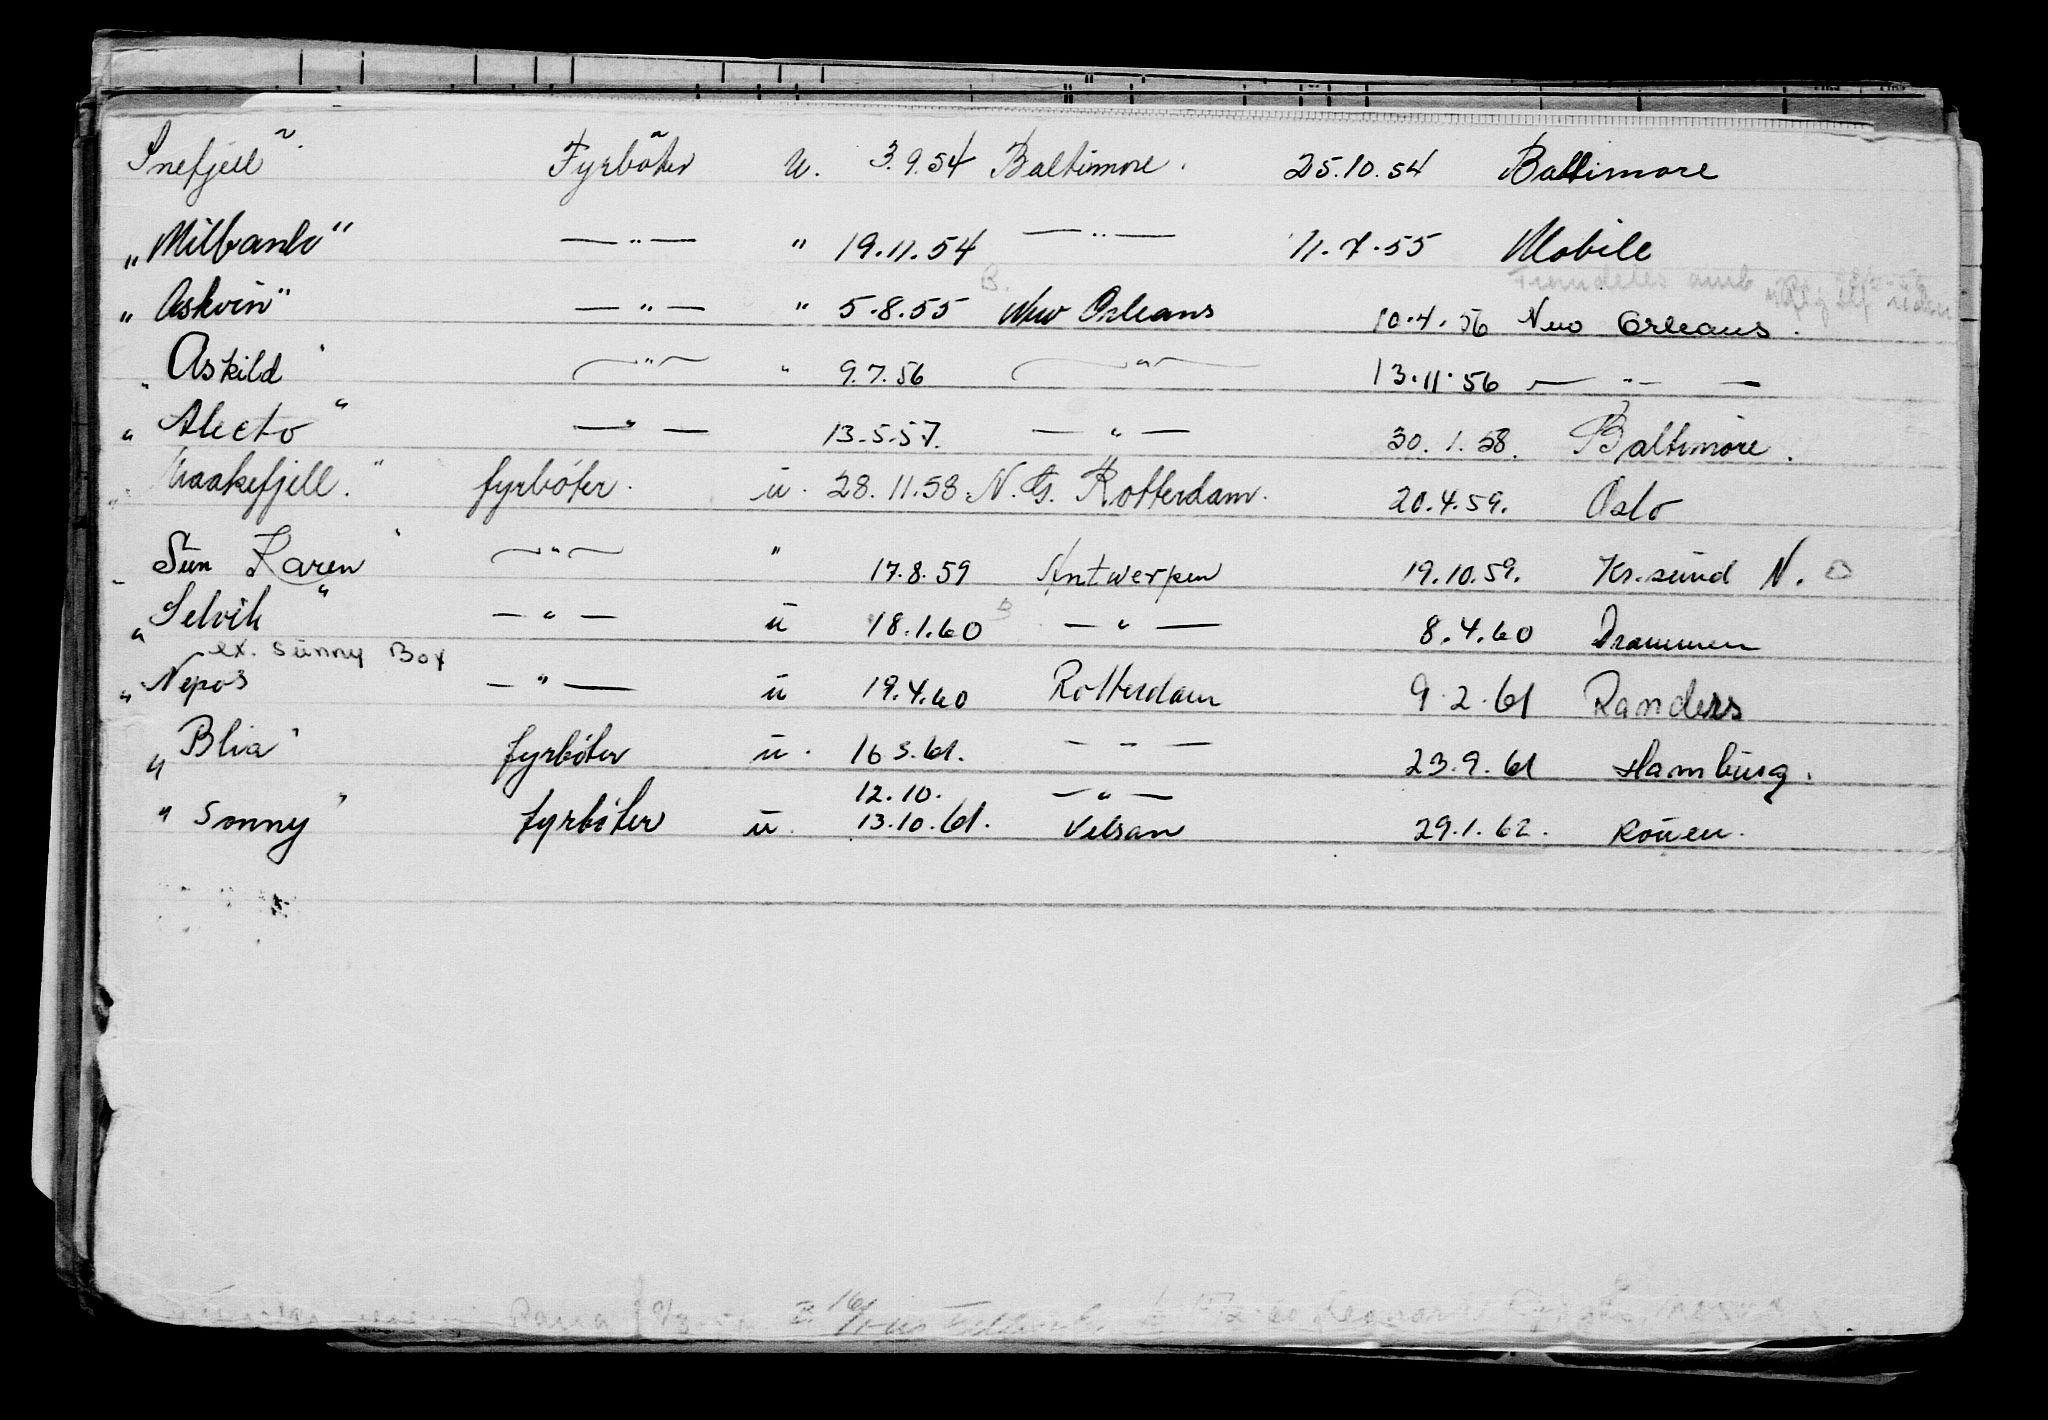 Snefjell" Fyrbøter u. 3.9.54 Baltimore. 25.10.54 Baltimore
"Milbank" —"— " 19.11.54 —"— 11.7.55 Mobile
"Askvin" —"— " 5.8.55 B. New Orleans 10.4.56 New Orleans.
"Askild" —"— " 9.7.56 —"— 13.11.56 —"—
"Alecto" —"— 13.5.57. —"— 30.1.58. Baltimore.
"Raakefjell." fyrbøter. u. 28.11.58. Rotterdam. 20.4.59. Oslo
"Sun Karen" —"— " 17.8.59 Antwerpen 19.10.59. Kr.sund N.
"Selvik" —"— u 18.1.60 —"— 8.4.60 Drammen
ex. Sunny Boy
"Nepos —"— u 19.4.60 Rotterdam 9.2.61 Randers
"Blia" fyrbøter u. 16 3.61. —"— 23.9.61 Hamburg.
12.10. —"—
"Sonny" fyrbøter u. 13.10.61. Velsan 29.1.62. Rouen.